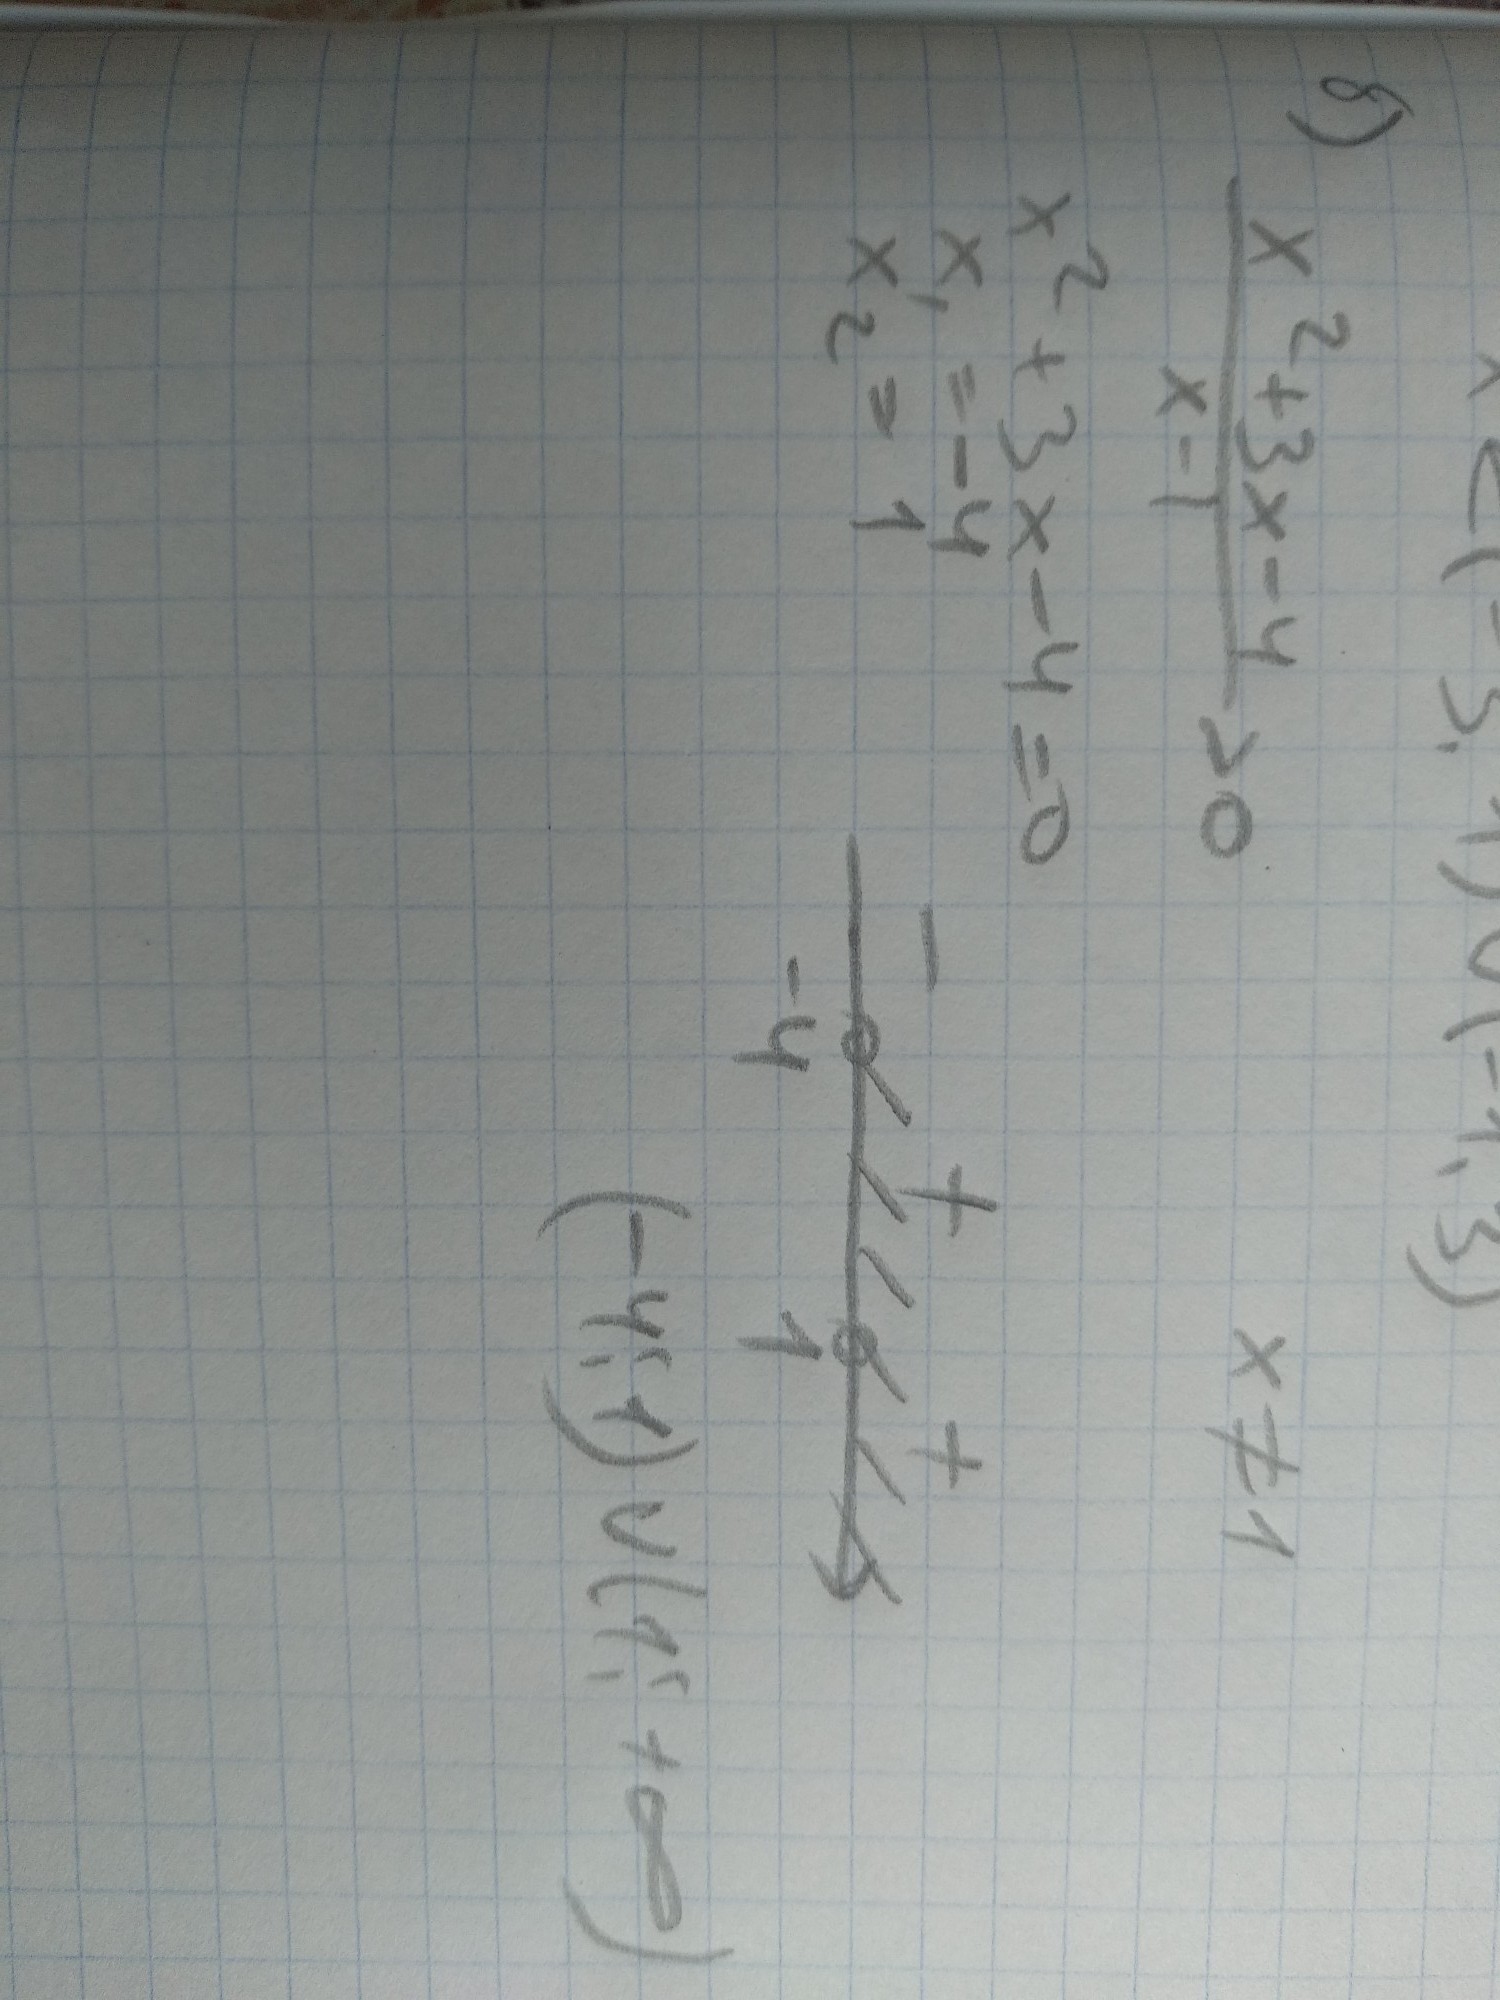 x ∈ (-5; 1) ∪ (-1; 3)
б) x²+3x-4 / x-1 > 0 x ≠ 1
x²+3x-4=0
x₁ = -4
x₂ = 1
- + +
-4 1
(-4; 1) ∪ (1; +∞)